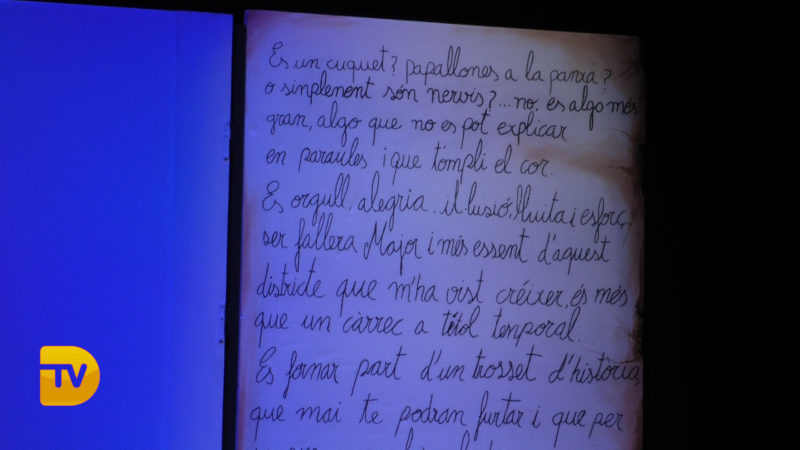 Es un cuquet? papallones a la panxa?
o simplement són nervis?...no, es algo més
gran, algo que no es pot explicar
en paraules i que t'ompli el cor.
Es orgull, alegria, il.lusió, lluita i esforç,
ser fallera Major i més essent d'aquest
districte que m'ha vist créixer, és més
que un càrrec a títol temporal.
Es formar part d'un trosset d'història,
que mai te podran furtar i que per
TV